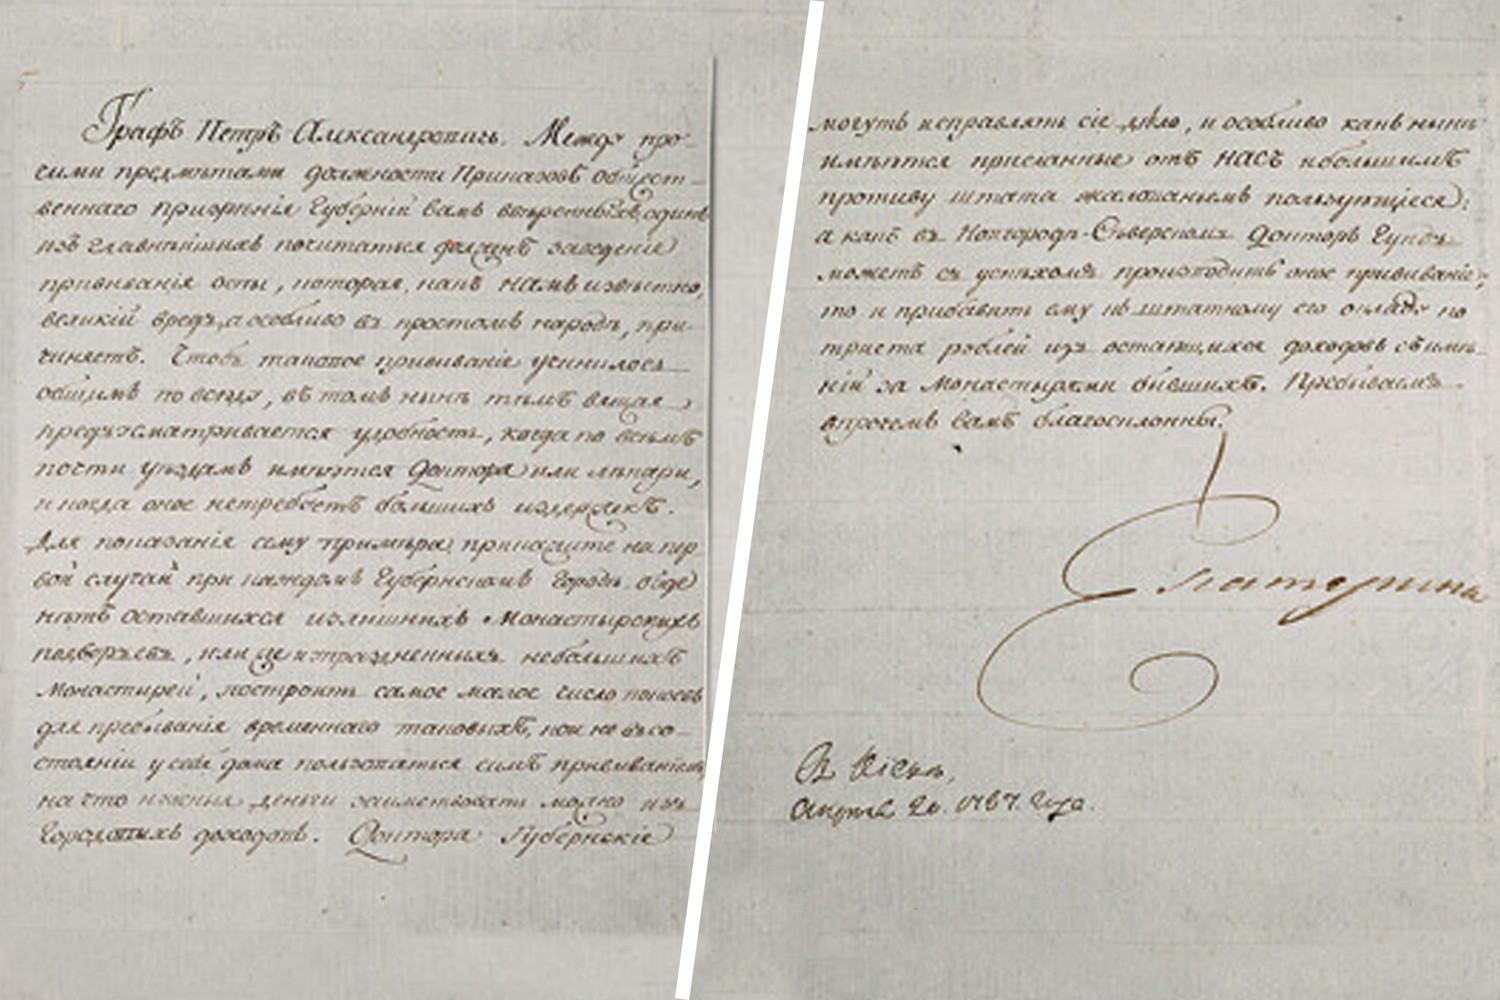 Графъ Петръ Александровичь. Между про-
чими предмѣтами должности Приказовъ общест-
веннаго призрѣнія Губерній вамъ ввѣренныхъ, одинъ
изъ главнѣйшихъ почитаться долженъ заведеніе
прививанія оспы, которая, какъ намъ извѣстно,
великій вредъ, а особливо въ простомъ народѣ, при-
чиняетъ. Чтобъ таковое прививаніе учинилось
общимъ повсюду, въ томъ нынѣ тѣмъ вящая
предъусматривается удобность, когда по всѣмъ
почти уѣздамъ имѣются Доктора или лѣкари,
и когда оное нетребуетъ большихъ издержекъ.
Для показанія сему примѣра, прикажите на пер-
вой случай при каждомъ Губернскомъ Городѣ въ оде
нѣтъ оставшихся излишнихъ Монастырскихъ
подворьевъ, или же и упраздненныхъ небольшихъ
Монастырей, построить самое малое число покоевъ
для пребыванія временнаго таковыхъ, кои не въ со-
стояніи у себя дома пользоваться симъ прививаніемъ,
на что нужныя деньги заимствовать можно изъ
Городовыхъ доходовъ. Доктора Губернскіе
могутъ исправлять сіе дѣло, и особливо какъ нынѣ
имѣются присланные отъ НАСЪ небольшимъ
противу штата жалованьемъ пользующіеся;
а какъ въ Новгородѣ-Сѣверскомъ Докторъ Гунъ
можетъ съ успѣхомъ производить оное прививаніе,
то и прибавить ему къ штатному его окладу по
триста рублей изъ остающихся доходовъ съ имѣ-
ній за Монастырями бывшихъ. Пребываемъ
впрочемъ вамъ благосклонны.
Екатерина
В Кіевѣ,
Апрѣля 20. 1787. Года.